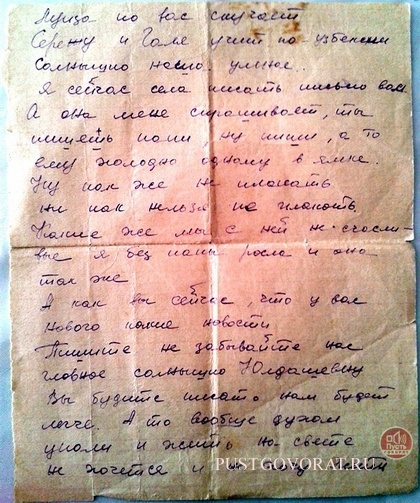 Луиза по вас скучает
Сережу и Галя учит по узбекски
Солнышко наше умное..
я сейчас села писать письмо вам
А она мене спрашивает, ты
пишеть папи, ну пиши, а то
ему холодно одному в ямке.
Ну как же не плакать
ни как нельзя не плакать.
Какие же мы с ней не счасли-
вые я без папы росла и она
так же
А как вы сейчас, что у вас
нового какие новости
Пишите не забывайте нас
главное солнышко Юлдашевну
Вы будите писать нам будет
легче. А то вообще духом
упали и жить на свете
не хочется и
PUSTGOVORAT.RU